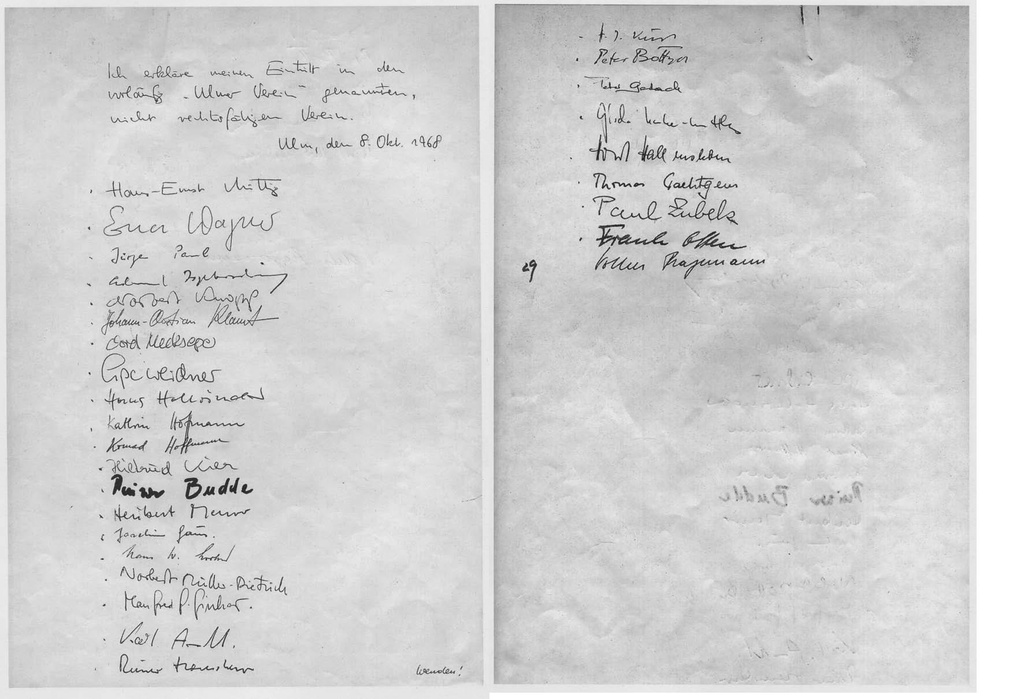 Ich erkläre meinen Eintritt in den
vorläufig "Ulmer Verein" genannten,
nicht rechtsfähigen Verein.
Ulm, den 8. Okt. 1968
Hans-Ernst Mittig
Wagner
Jürgen Paul
Norbert Knopp
Johann-Christian Klamt
Cord Meckseper
Weidner
Hans Hollländer
Kathrin Hofmann
Konrad Hoffmann
Hiltrud Kier
Rainer Budde
Heribert Meurer
Joachim Gaus.
Hans W.
Norbert Müller-Dietrich
Manfred F. Fischer.
Karl Arndt.
Reiner Haussherr
wenden!
Peter Böttger
Peter Gerlach
Horst Hallensleben
Thomas Gaehtgens
Paul Zubek
Frank Otten
Volker Plagemann
29